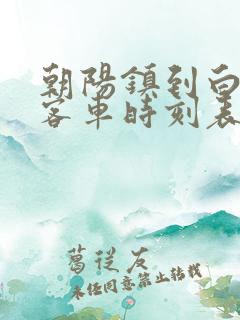 朝陽鎮到白
客車時刻表
葛從友
未經同意禁止轉載